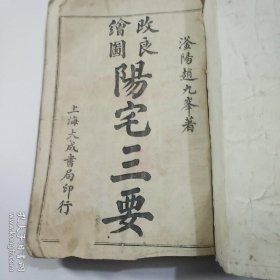 滏陽趙九峯著
改良
繪圖
陽宅三要
上海大成書局印行